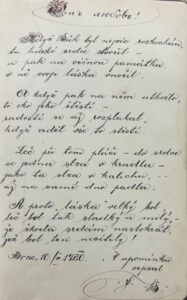 Když Bůh byl nejvíce rozkochán,
tu lidské srdce stvořil –
a pak na věčnou památku
v ně svoji lásku vnořil.
A když pak na něm utkvělo,
to oko jeho štěstí –
radostí se aj rozplakal,
když viděl vše to
Leč při tom pláči – do srdce
se jedna slza v kradla –
jako ta slza v kalichu,...
až na samé dno padla.
A proto láska velký bol,
leč bol tak sladký a milý –
je škoda srdcím nastokrát,
jež bol ten necítily!
Brno, 10/ 1920.
V upomínku
vepsal